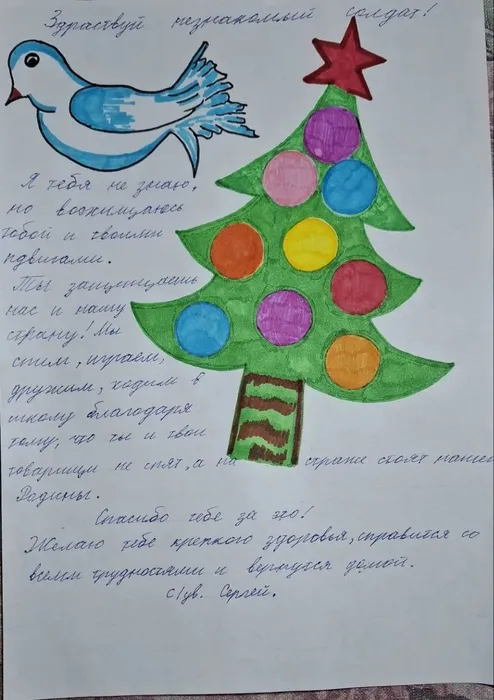 Здраствуй незнакомый солдат!
Я тебя не знаю,
но восхищаюсь
тобой и твоими
пдвигами.
Ты защищаешь
нас и нашу
страну! Мы
спим, играем,
дружим, ходим в
школу благодаря
тому, что ты и твои
товарищи не спят, а на страже стоят нашей
Радины.
Спасибо тебе за это!
Желаю тебе крепкого здоровья, справится со
всеми трудностями и вернутся домой.
С/ув. Сергей.